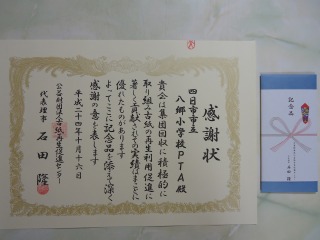 感謝状
四日市市立
八郷小学校PTA殿
貴会は集団回収に積極的に
取り組み古紙の再生利用促進に
著しく貢献されその実績はまことに
優れたものがあります
よってここに記念品を添えて深く
感謝の意を表します
平成二十四年十月十六日
公益財団法人古紙再生促進センター
代表理事 石田隆
記念品